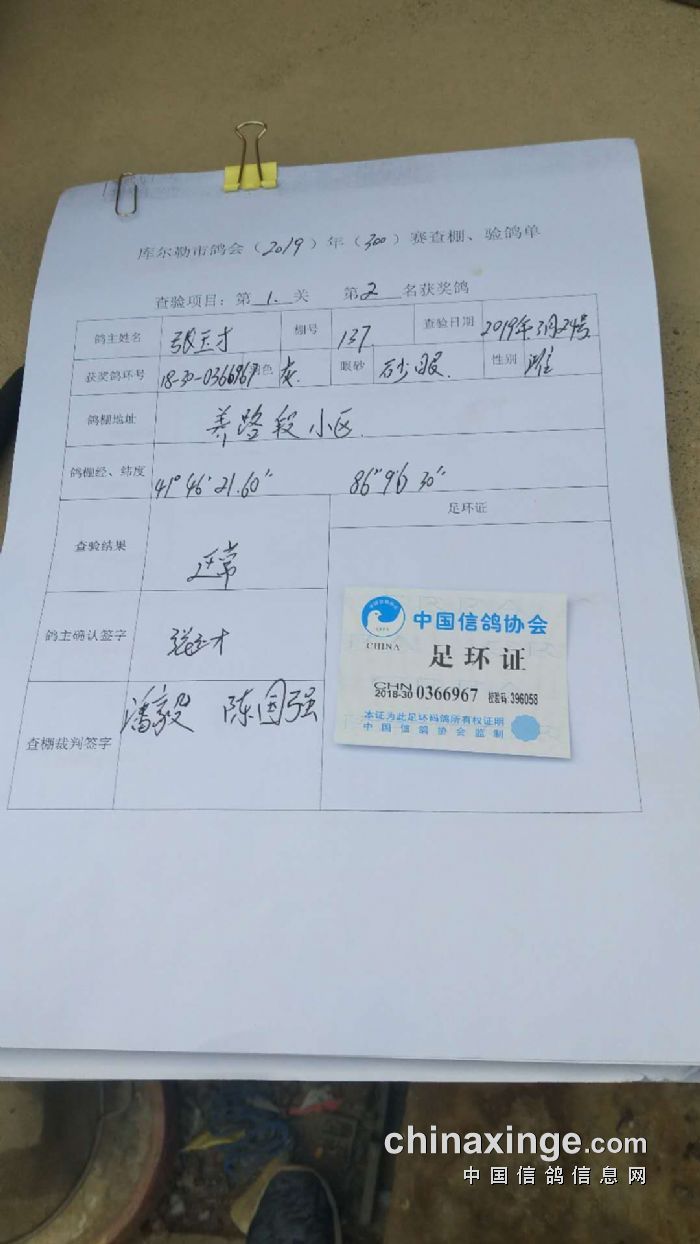 库尔勒市鸽会（2019）年（300）赛查棚、验鸽单
查验项目：第1.关 第2名获奖鸽
鸽主姓名 张玉才 棚号 137 查验日期 2019年3月24号
获奖鸽环号 18-30-0366967 羽色 灰. 眼砂 砂眼. 性别 雄
鸽棚地址 养路段小区.
鸽棚经、纬度 41° 46' 21.60" 86° 9'6 30"
足环证
查验结果 正常
鸽主确认签字 张玉才
查棚裁判签字 潘毅 陈国强
中国信鸽协会
CHINA
足环证
CHN
2018-30 0366967 校验码 396058
本证为此足环码鸽所有权证明
中国信鸽协会监制
chinaxinge.com
中国信鸽信息网